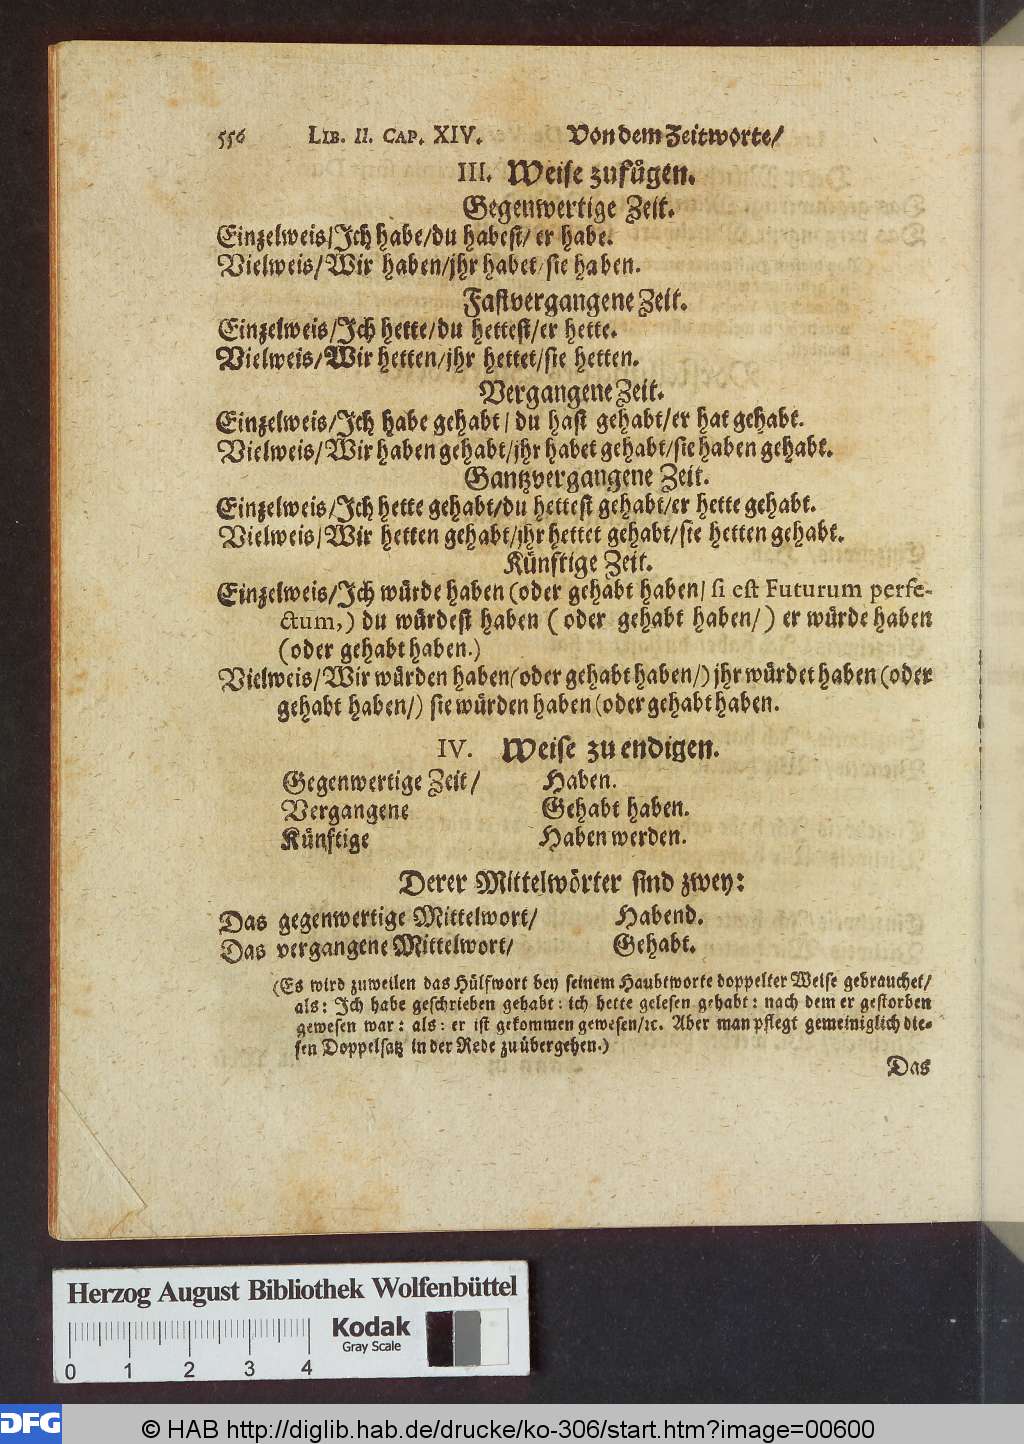 556 LIB. II. CAP. XIV. Von dem Zeitworte/
III. Weise zufügen.
Gegenwertige Zeit.
Einzelweis/Ich habe/du habest/er habe.
Vielweis/Wir haben/jhr habet/sie haben.
Fastvergangene Zeit.
Einzelweis/Ich hette/du hettest/er hette.
Vielweis/Wir hetten/jhr hettet/sie hetten.
Vergangene Zeit.
Einzelweis/Ich habe gehabt/du hast gehabt/er hat gehabt.
Vielweis/Wir haben gehabt/jhr habet gehabt/sie haben gehabt.
Gantzvergangene Zeit.
Einzelweis/Ich hette gehabt/du hettest gehabt/er hette gehabt.
Vielweis/Wir hetten gehabt/jhr hettet gehabt/sie hetten gehabt.
Künftige Zeit.
Einzelweis/Ich würde haben (oder gehabt haben/ si est Futurum perfe-
ctum,) du würdest haben (oder gehabt haben/) er würde haben
(oder gehabt haben.)
Vielweis/Wir würden haben (oder gehabt haben/) jhr würdet haben (oder
gehabt haben/) sie würden haben (oder gehabt haben.
IV. Weise zu endigen.
Gegenwertige Zeit/ Haben.
Vergangene Gehabt haben.
Künftige Haben werden.
Derer Mittelwörter sind zwey:
Das gegenwertige Mittelwort/ Habend.
Das vergangene Mittelwort/ Gehabt.
(Es wird zuweilen das Hülfwort bey seinem Haubtworte doppelter Weise gebrauchet/
als: Ich habe geschrieben gehabt: ich hette gelesen gehabt: nach dem er gestorben
gewesen war: als: er ist gekommen gewesen/ꝛc. Aber man pflegt gemeiniglich die-
sen Doppelsatz in der Rede zu übergehen.)
Das
Herzog August Bibliothek Wolfenbüttel
Kodak
Gray Scale
0 1 2 3 4
DFG © HAB http://diglib.hab.de/drucke/ko-306/start.htm?image=00600